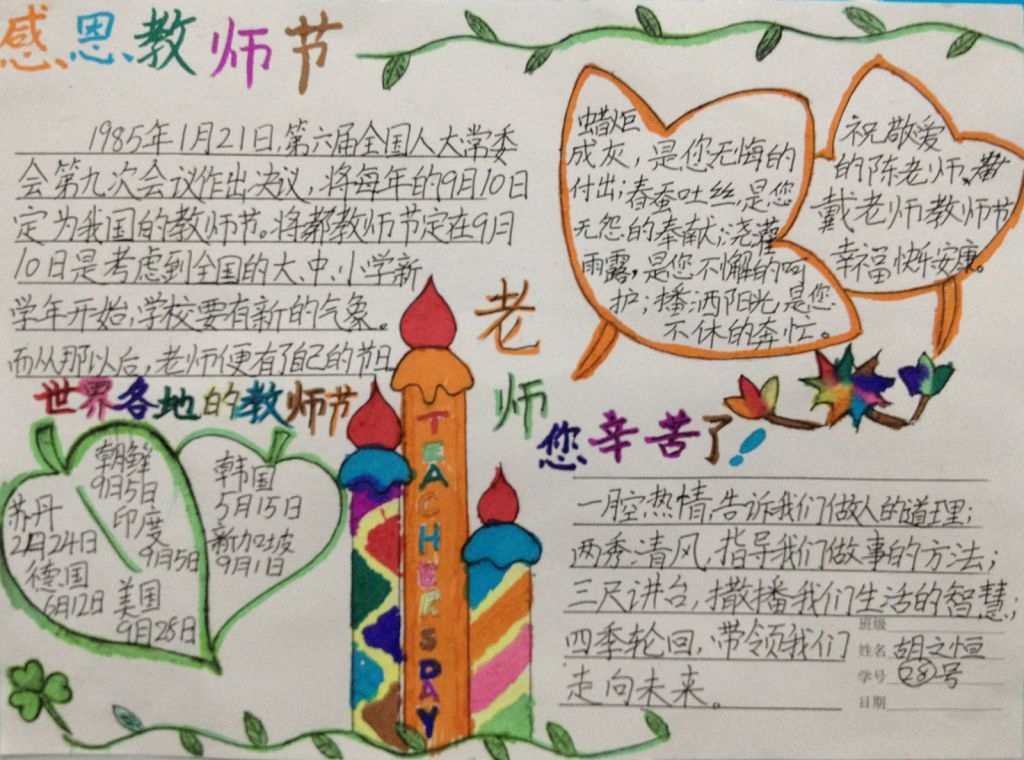 感恩教师节
1985年1月21日,第六届全国人大常委
会第九次会议作出决议,将每年的9月10日
定为我国的教师节。将都教师节定在9月
10日是考虑到全国的大、中、小学新
学年开始,学校要有新的气象。
而从那以后,老师便有了自己的节日
蜡炬
成灰,是您无悔的
付出;春蚕吐丝,是您
无怨的奉献;浇灌
雨露,是您不懈的呵
护;播洒阳光,是您
不休的奔忙。
祝敬爱
的陈老师、
戴老师教师节
幸福快乐安康。
老
师
您辛苦了!
世界各地的教师节
朝鲜
9月5日
印度
9月5日
苏丹
2月24日
德国
6月12日
美国
9月28日
韩国
5月15日
新加坡
9月1日
TEACHER'S DAY
一腔热情,告诉我们做人的道理;
两季清风,指导我们做事的方法;
三尺讲台,撒播我们生活的智慧;
四季轮回,带领我们
走向未来。
班级
姓名 胡之恒
学号 28号
日期